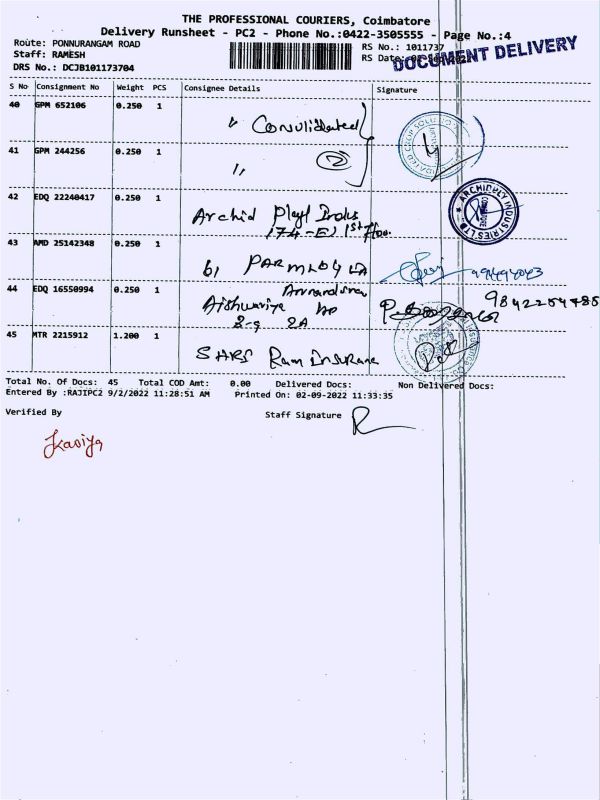 THE PROFESSIONAL COURIERS, Coimbatore
Delivery Runsheet - PC2 - Phone No.:0422-3505555 - Page No.:4
Route: PONNURANGAM ROAD
RS No.: 1011737
Staff: RAMESH
RS Date:
DOCUMENT DELIVERY
DRS No.: DCJB101173704
S No Consignment No Weight PCS Consignee Details Signature
40 GPM 652106 0.250 1
" Consolidated
41 GPM 244256 0.250 1
2
"
42 EDQ 22240417 0.250 1
Archid Plyd Inds
174-E) 1st Floo.
ARCHIDPLY INDUSTRIES LTD
43 AMD 25142348 0.250 1
44 EDQ 16550994 0.250 1
Aishwariya
2A
9842254785
45 MTR 2215912 1.200 1
Ram Insurane
Total No. Of Docs: 45 Total COD Amt: 0.00 Delivered Docs: Non Delivered Docs:
Entered By :RAJIPC2 9/2/2022 11:28:51 AM Printed On: 02-09-2022 11:33:35
Verified By Staff Signature